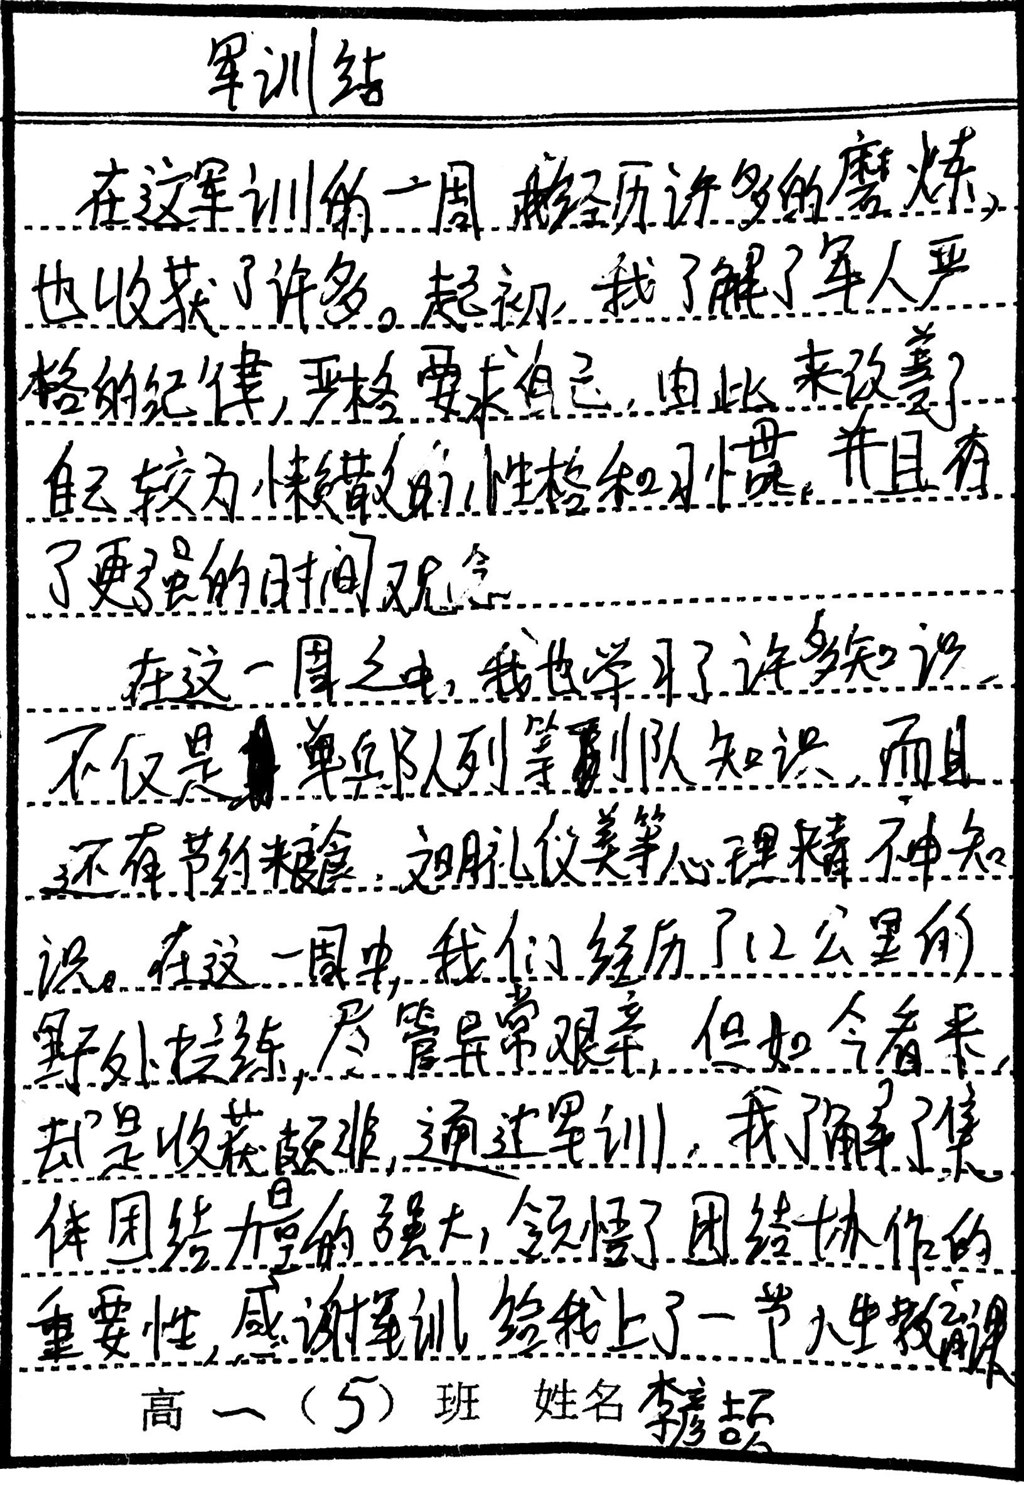 军训结
在这军训的一周 我经历许多的磨炼,
也收获了许多。起初, 我了解了军人严
格的纪律, 严格要求自己, 由此来改善了
自己较为懒散的性格和习惯, 并且有
了更强的时间观念
在这一周之中, 我也学习了许多知识,
不仅是单兵队列等列队知识, 而且
还有节约粮食, 文明礼仪美等心理精神知
识。在这一周中, 我们经历了12公里的
野外拉练, 尽管异常艰辛, 但如今看来,
却是收获颇非, 通过军训, 我了解了集
体团结力量的强大, 领悟了团结协作的
重要性, 感谢军训给我上了一节人生教育课
高一(5)班 姓名李彦喆